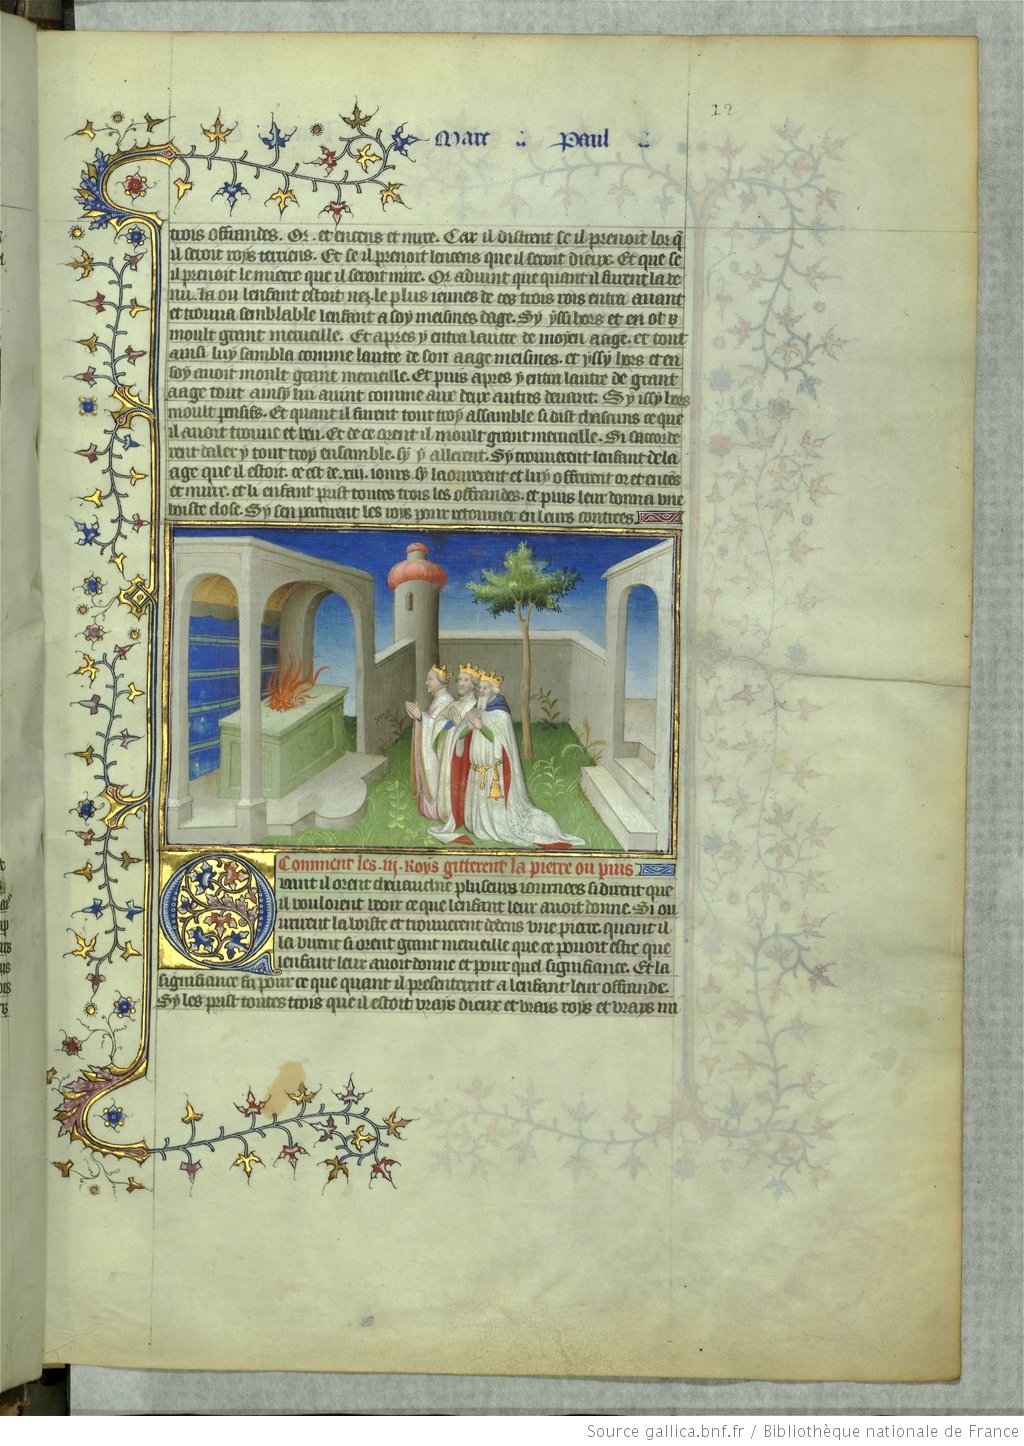 12
Marc Paul
trois offrandes. Or. et encens et mire. Car il distrent se il prenoit lor q̃
il seroit roys terriens. Et se il prenoit lencens que il seroit dieux. Et que se
il prenoit le mierre que il seroit mire. Or aduint que quant il furent la ve
nu. La ou lenfant estoit nez. le plus ieunes de ces trois rois entra auant
et trouua semblable lenfant a soy meismes dage. Sy yssi hors et en ot
moult grant merueille. Et apres y entra lautre de moyen aage. et tout
ainsi luy sambla comme lautre de son aage meismes. et yssy hors et en
soy auoit moult grant merueille. Et puis apres y entra lautre de grant
aage tout ainsy lui auint comme aux deux autres deuant. Sy issy hors
moult pensiss. Et quant il furent tout troy assamble si dist chascuns ce que
il auoit trouue et veu. Et de ce orent il moult grant merueille. Si sacorde
rent daler y tout troy ensamble. sy y allerent. Sy trouuerent lenfant de la
age que il estoit. ce est de .xiii. iours. sy laourerent et luy offrirent or et encẽs
et mire. et li enfant prist toutes trois les offrandes. et puis leur donna vne
boiste close. Sy sen partirent les roys pour retourner en leurs contrees
Comment les .iij. Roys gitterent la pierre ou puis
Quant il orent cheuauchie pluseurs iournees si dirent que
il vouloient veoir ce que lenfant leur auoit donne. Si ou
urirent la boiste et trouuerent dedens vne pierre. quant il
la virent si orent grant merueille que ce pouoit estre que
lenfant leur auoit donne et pour quel signifiance. Et la
signifiance fu pour ce que quant il presenterent a lenfant leur offrande.
Sy les prist toutes trois que il estoit vrais dieux et vrais roys et vrays mi
Source gallica.bnf.fr / Bibliothèque nationale de France